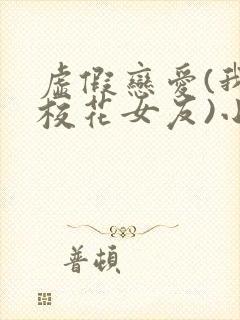 虛假戀愛(我
校花女友)小
普頓